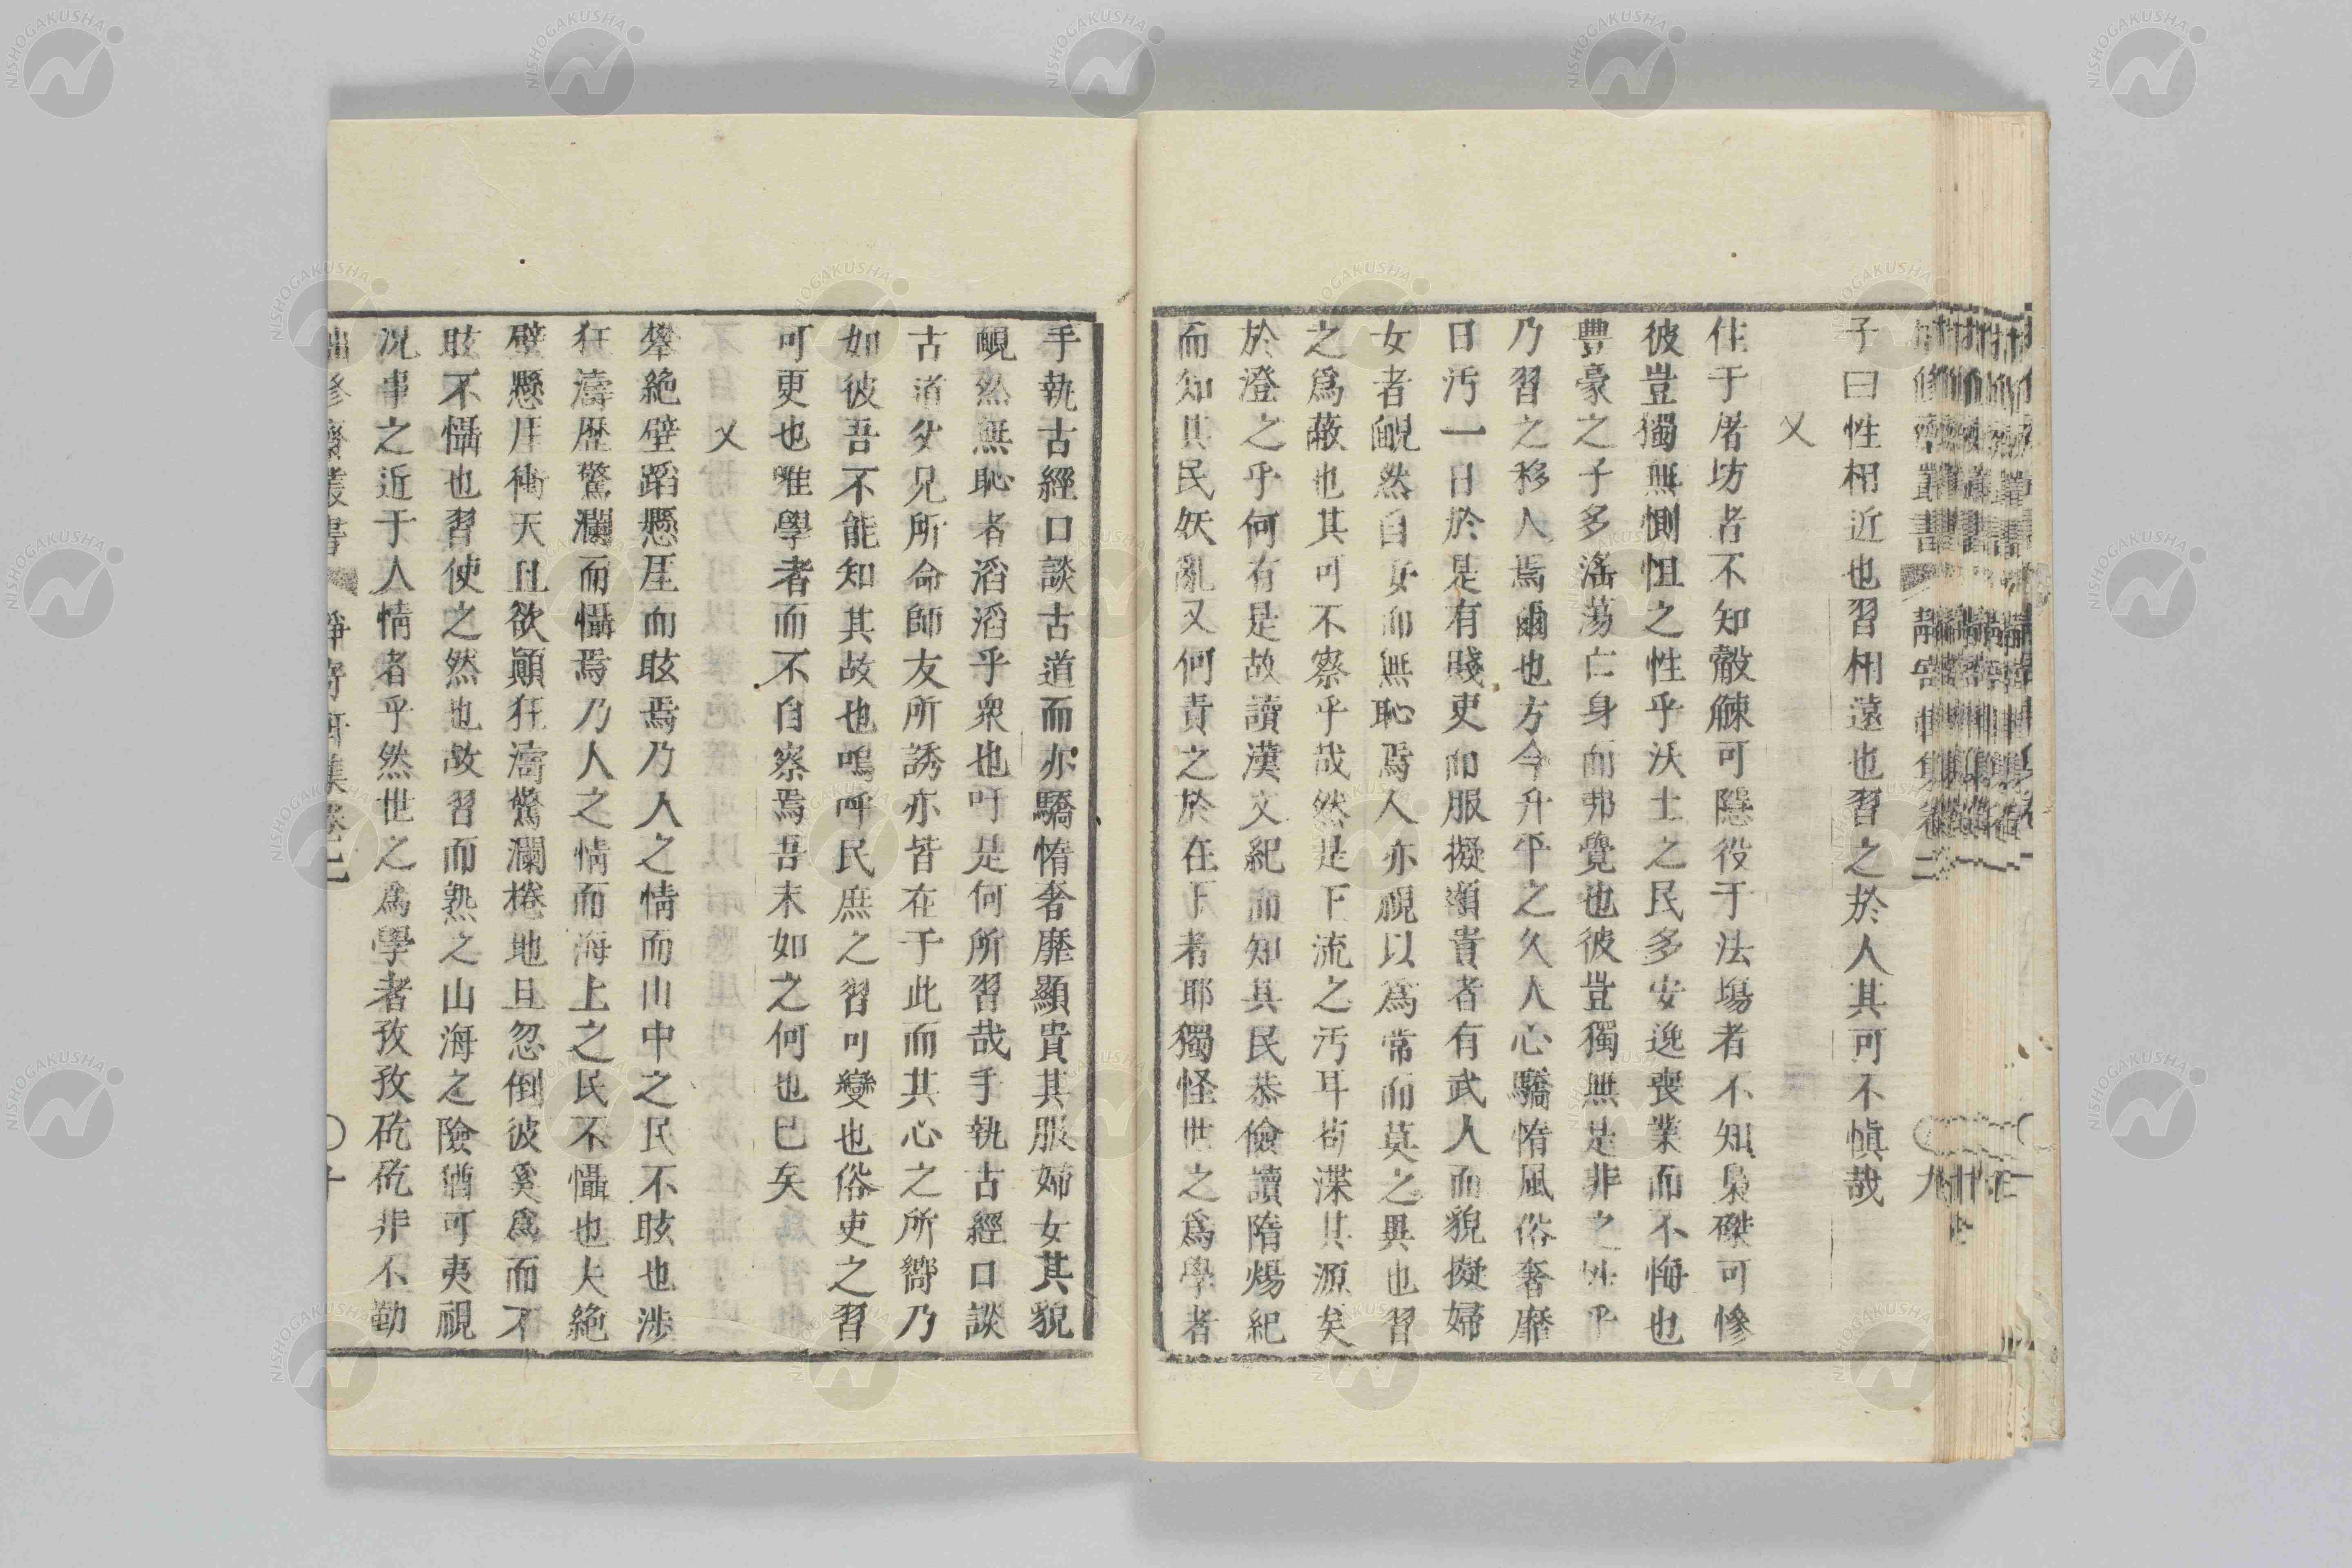 子曰性相近也習相遠也習之於人其可不愼哉
又
住于屠坊者不知觳觫可隱役于法塲者不知梟磔可慘
彼豈獨無惻怛之性乎沃土之民多安逸喪業而不悔也
豐豪之子多滛蕩亡身而弗覺也彼豈獨無是非之性乎
乃習之移人焉爾也方今升平之久人心驕惰風俗奢靡
日汚一日於是有賤吏而服擬顯貴者有武人而貌擬婦
女者靦然自安而無恥焉人亦視以爲常而莫之異也習
之爲蔽也其可不察乎哉然是下流之汚耳苟渫其源矣
於澄之乎何有是故讀漢文紀而知其民恭儉讀隋煬紀
而知其民妖亂又何責之於在下者耶獨怪世之爲學者
手執古經口談古道而亦驕惰奢靡顯貴其服婦女其貌
靦然無恥者滔滔乎衆也吁是何所習哉手執古經口談
古道父兄所命師友所誘亦皆在于此而其心之所嚮乃
如彼吾不能知其故也嗚呼民庶之習可變也俗吏之習
可更也唯學者而不自察焉吾末如之何也已矣
又
攀絶壁蹈懸厓而眩焉乃人之情而山中之民不眩也涉
狂濤歷驚瀾而懾焉乃人之情而海上之民不懾也夫絶
壁懸厓衝天且欲顚狂濤驚瀾捲地且忽倒彼奚爲而不
眩不懾也習使之然也故習而熟之山海之險猶可夷視
况事之近于人情者乎然世之爲學者孜孜矻矻非不勤